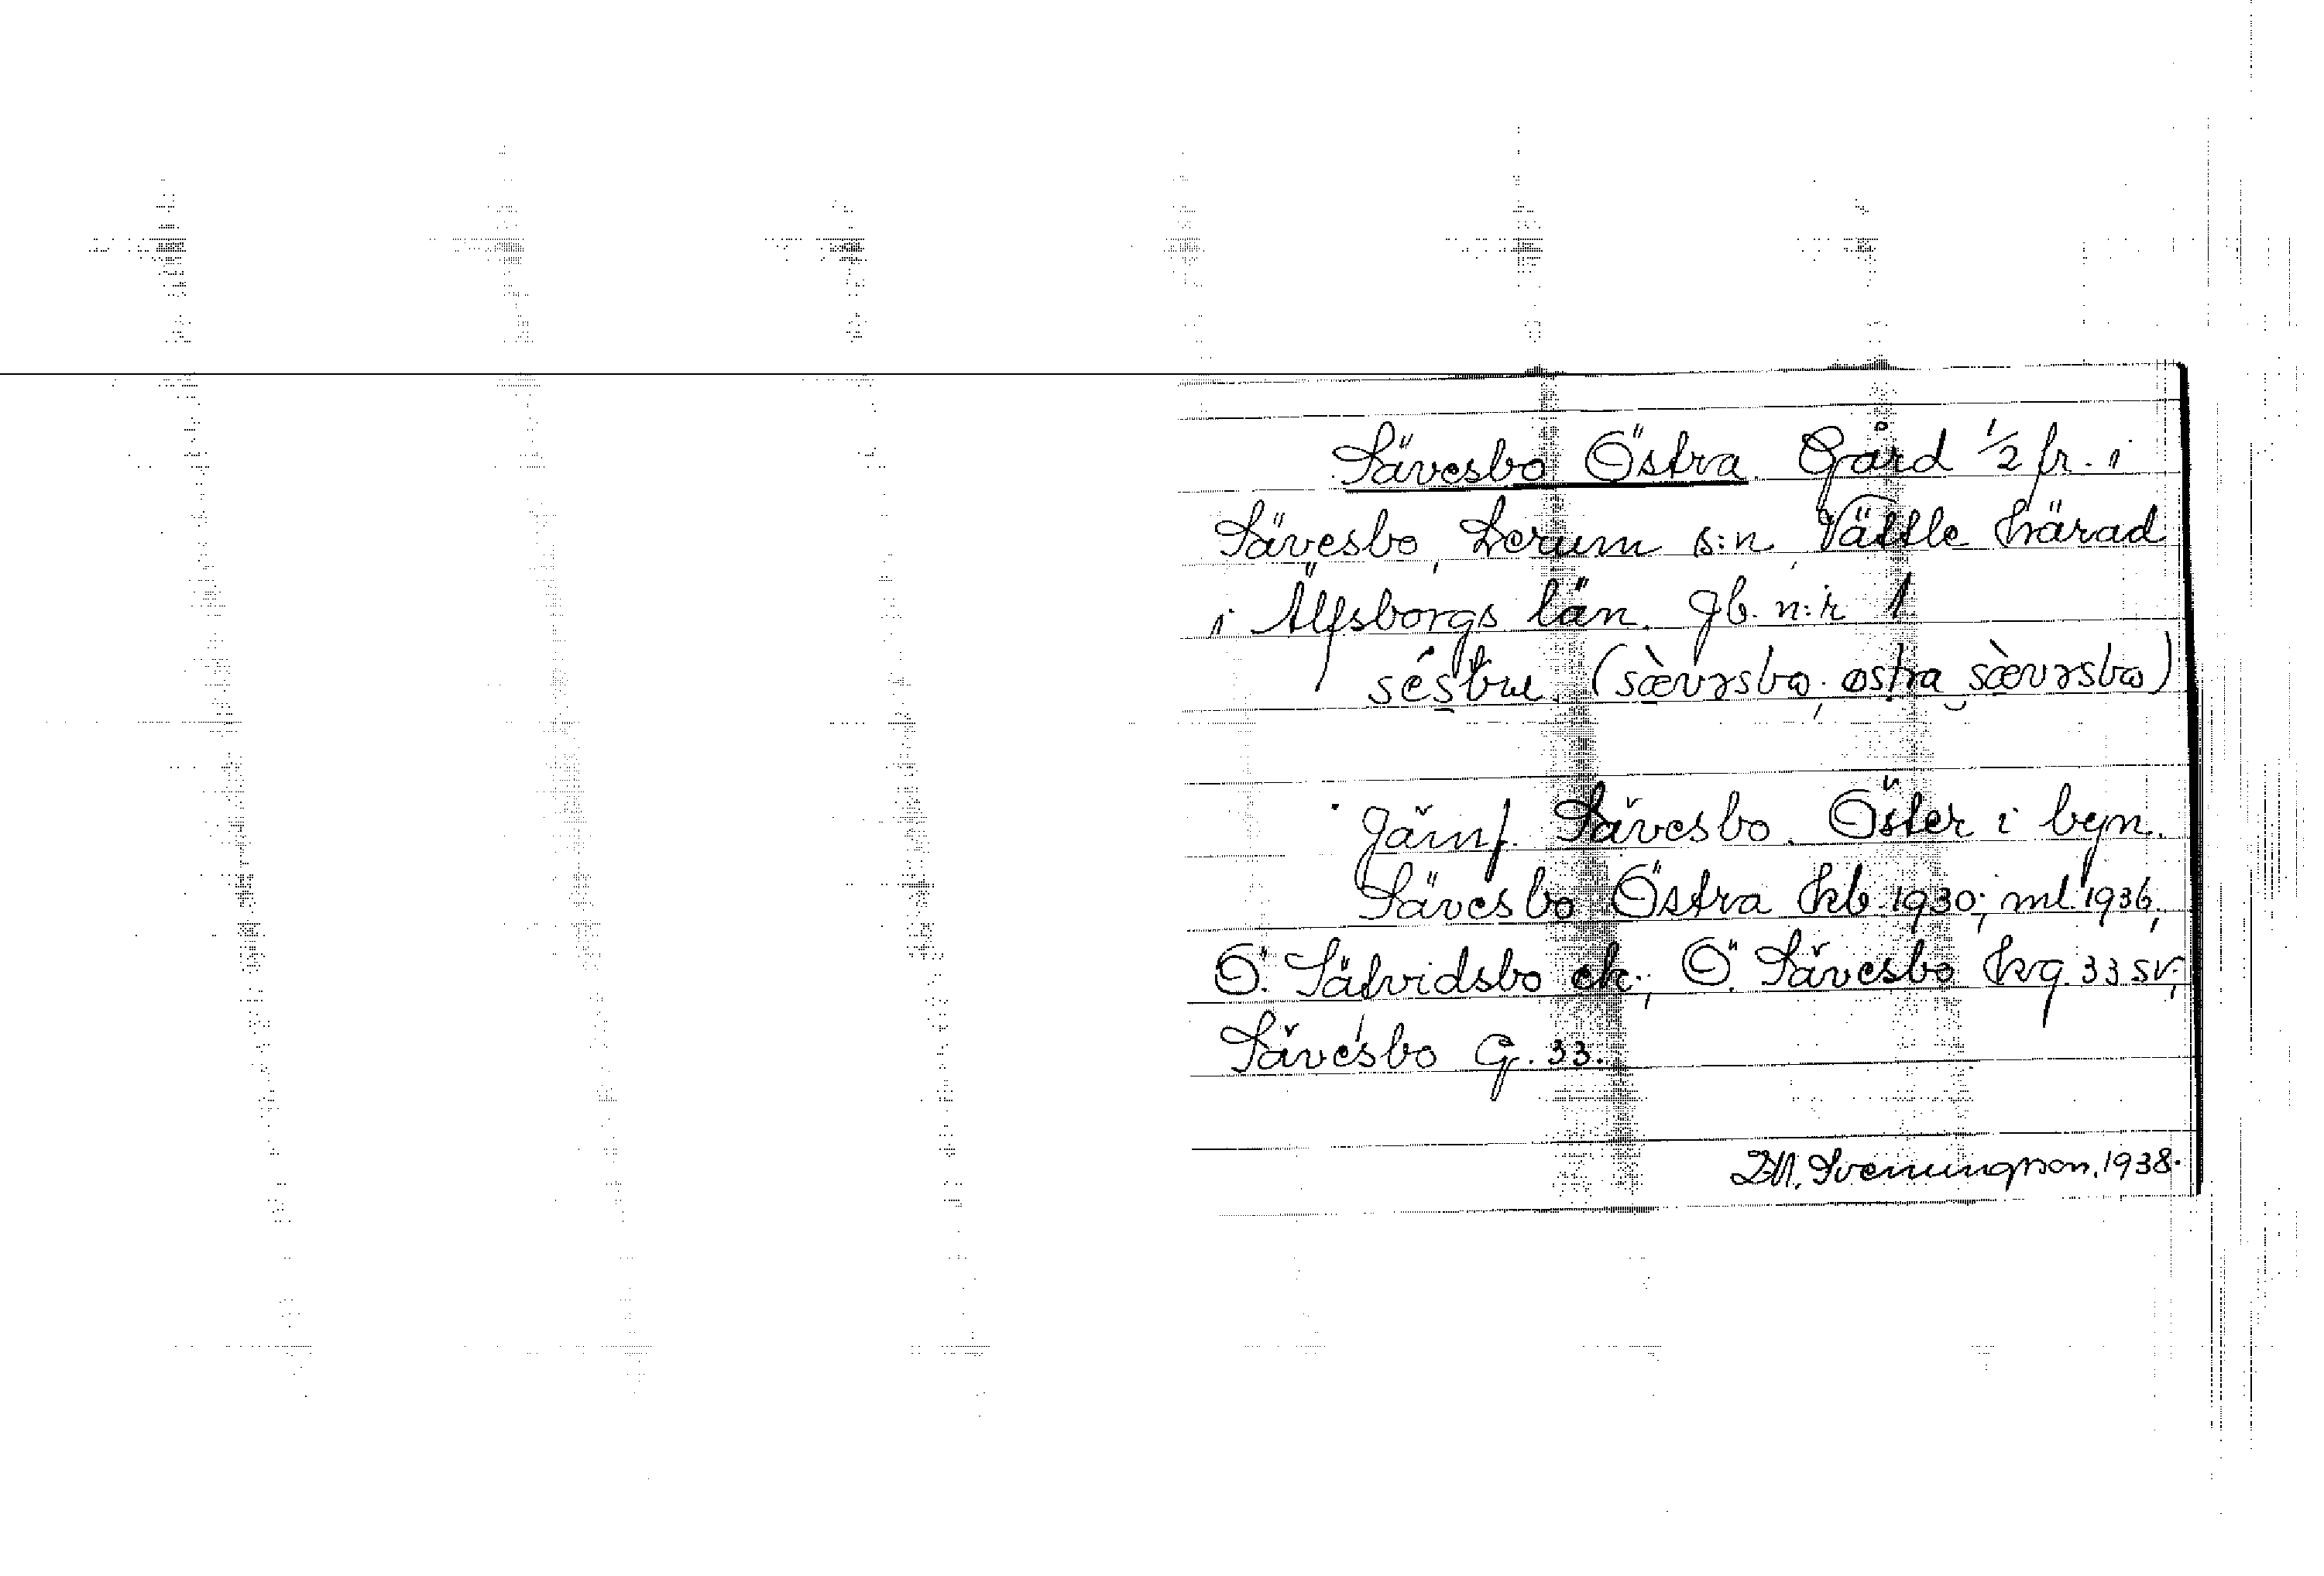 Sävesbo Östra. Gård 1/2 fr. i
Sävesbo, Lerum s:n, Vättle härad
i Älfsborgs län. Jb. n:r 1
(sævəsbo; østra sævəsbo)
Jämf. Sävesbo. Öster i byn.
Sävesbo Östra kb 1930; ml 1936;
Ö. Säfvidsbo ek.; Ö. Sävesbo hvg. 33 sv;
Sävesbo G. 33.
Svenungsson. 1938.